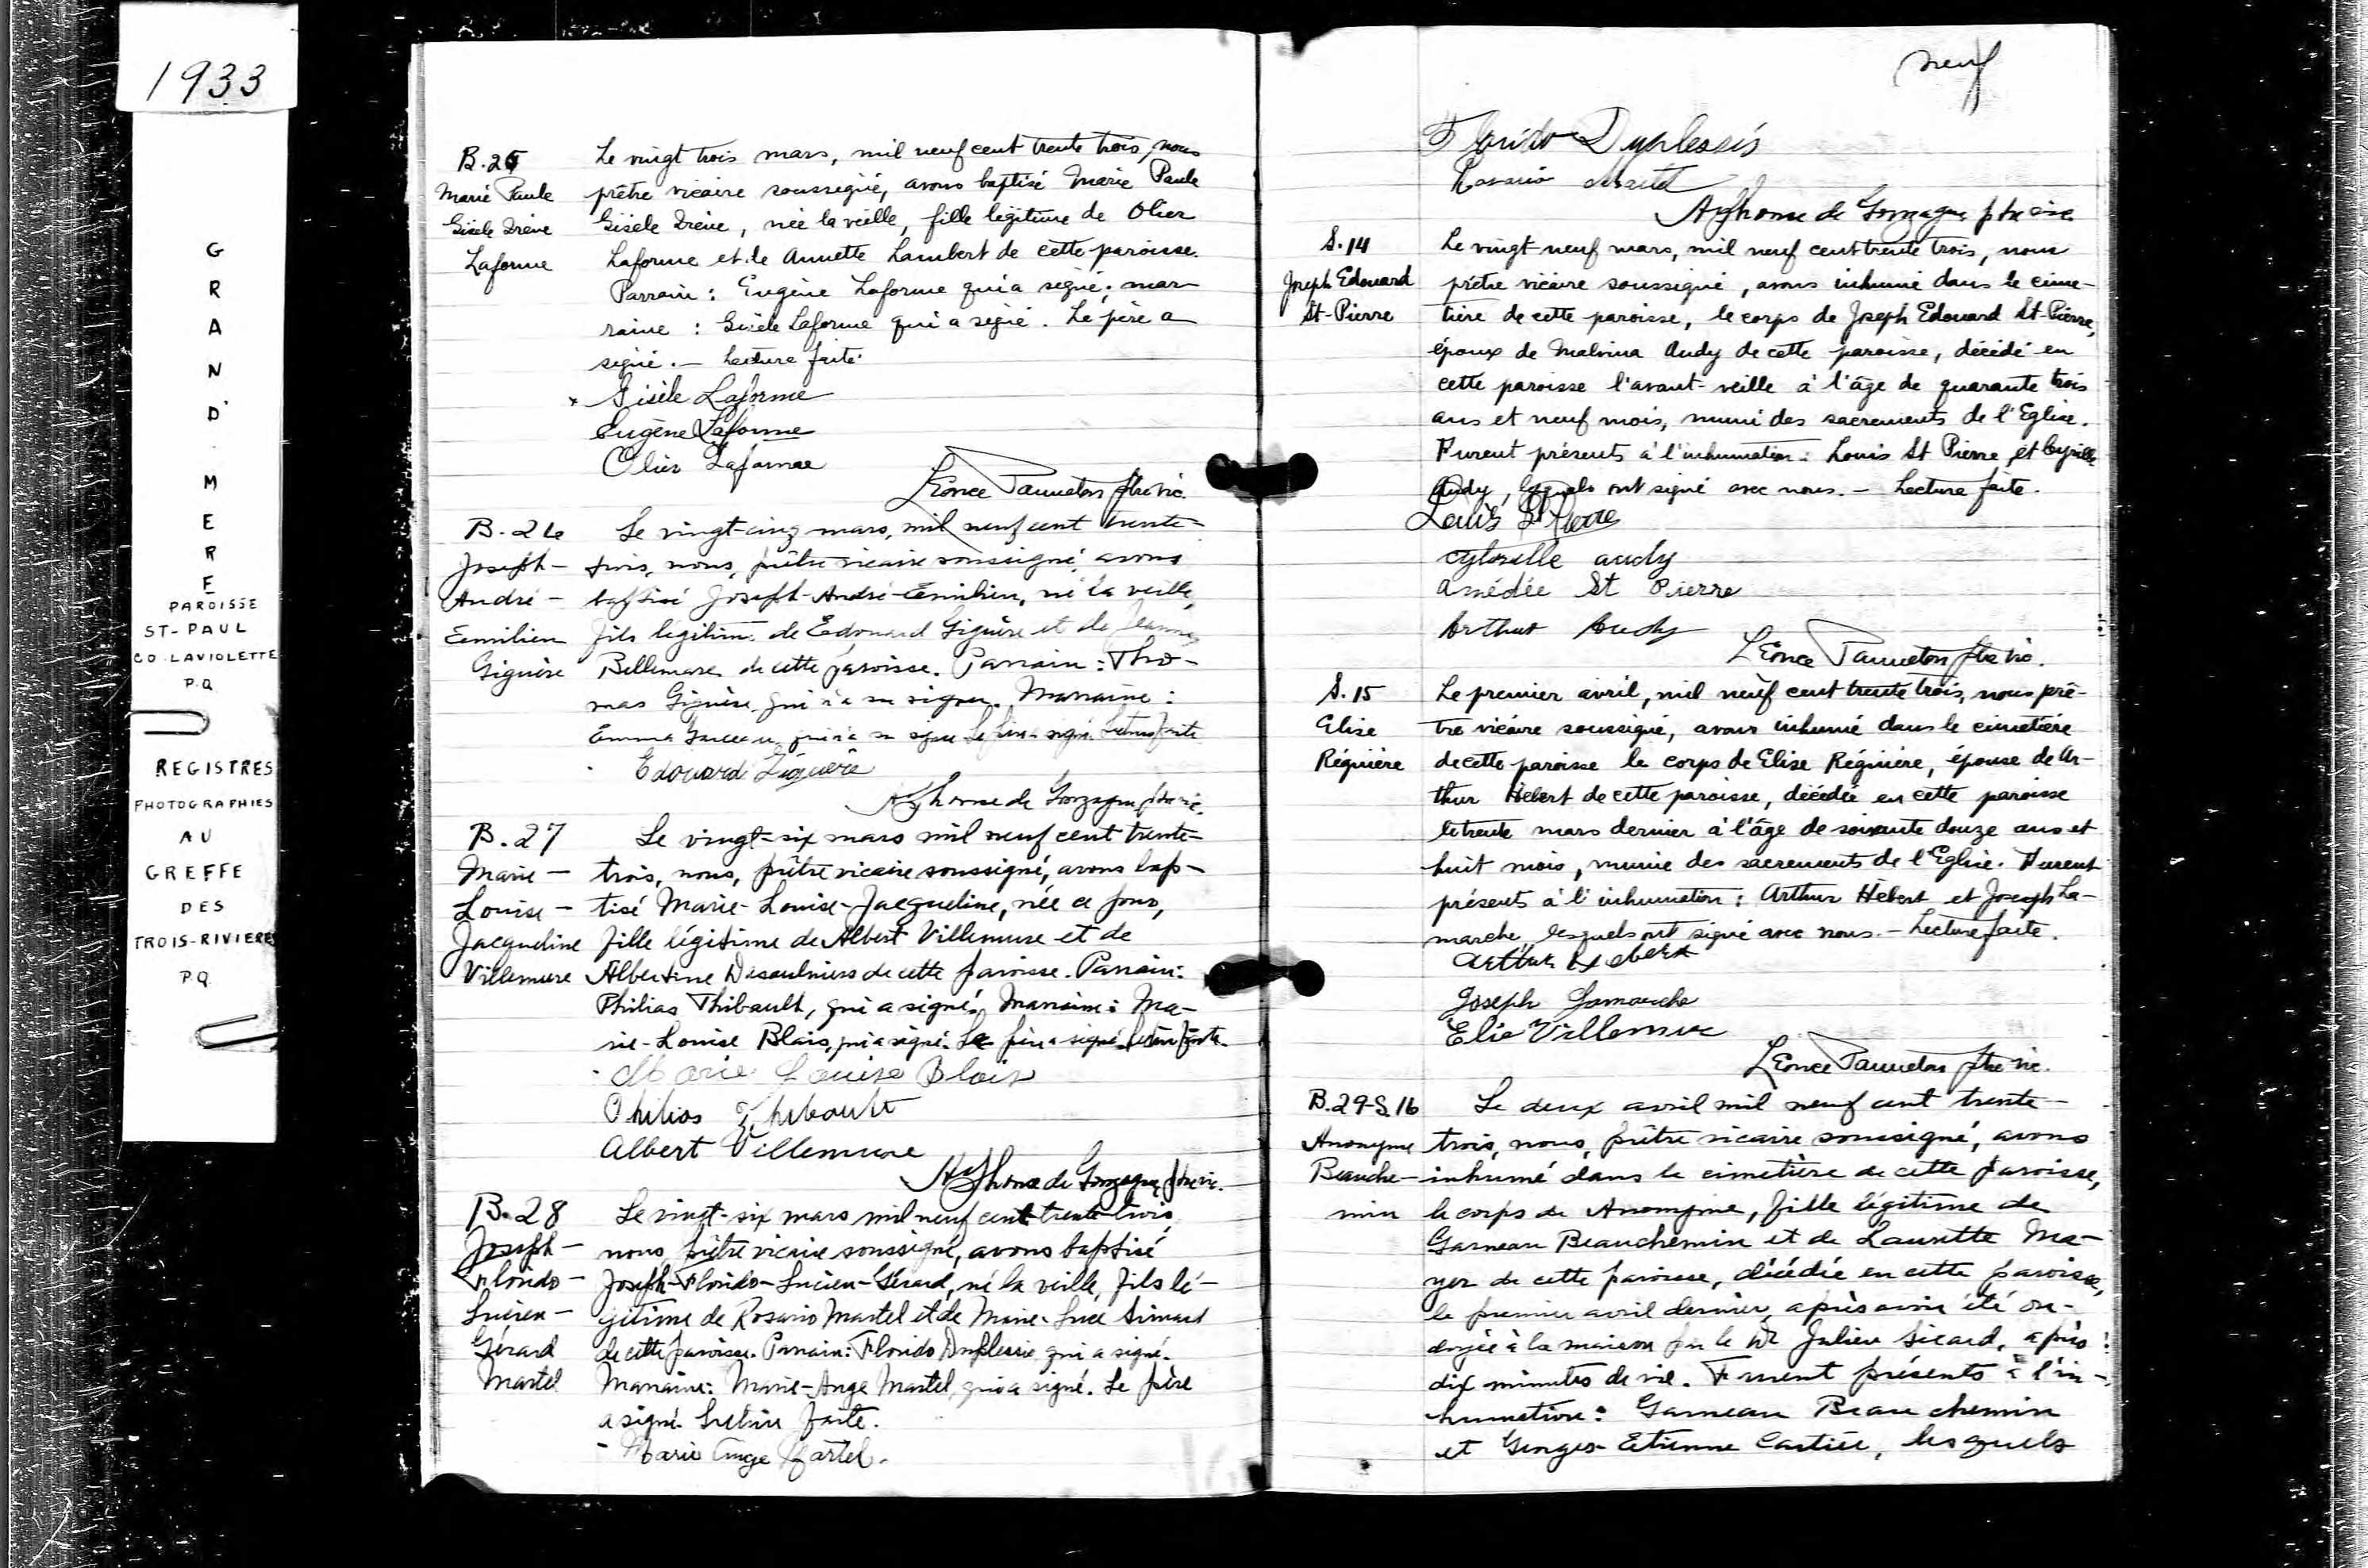 1933
GRAND'MERE
PAROISSE
ST-PAUL
CO. LAVIOLETTE
P.Q
REGISTRES
PHOTOGRAPHIES
AU
GREFFE
DES
TROIS-RIVIERES
P.Q.
B.25
Marie Paule
Gisèle Irène
Laforme
Le vingt trois mars, mil neuf cent trente trois, nous
prêtre vicaire soussigné, avons baptisé Marie Paule
Gisèle Irène, née la veille, fille légitime de Olier
Laforme et de Annette Lambert de cette paroisse.
Parrain : Eugène Laforme qui a signé; mar-
raine : Gisèle Laforme qui a signé. Le père a
signé. — Lecture faite.
Gisèle Laforme
Eugène Laforme
Olier Laforme
Léonce Panneton ptre vic.
B.26
Joseph-
André-
Emilien
Giguère
Le vingt-cinq mars, mil neuf cent trente-
trois, nous, prêtre vicaire soussigné, avons
baptisé Joseph-André-Emilien, né la veille,
fils légitime de Edouard Giguère et de Jeanne
Bellemare de cette paroisse. Parrain : Tho-
mas Giguère qui n'a su signer. Marraine :
Emma Garceau qui n'a su signer. Le père a signé. Lecture faite
Edouard Giguère
Alphonse de Gonzague ptre vic.
B.27
Marie-
Louise-
Jacqueline
Villemure
Le vingt-six mars mil neuf cent trente-
trois, nous, prêtre vicaire soussigné, avons bap-
tisé Marie-Louise-Jacqueline, née ce jour,
fille légitime de Albert Villemure et de
Albertine Desaulniers de cette paroisse. Parrain :
Philias Thibault, qui a signé. Marraine : Ma-
rie-Louise Blais, qui a signé. Le père a signé. Lecture faite.
Marie Louise Blais
Philias Thibault
Albert Villemure
Alphonse de Gonzague ptre vic.
B.28
Joseph-
Florido-
Lucien-
Gérard
Martel
Le vingt-six mars mil neuf cent trente-trois,
nous, prêtre vicaire soussigné, avons baptisé
Joseph-Florido-Lucien-Gérard, né la veille, fils lé-
gitime de Rosario Martel et de Marie-Luce Simard
de cette paroisse. Parrain : Florido Duplessis qui a signé.
Marraine : Marie-Ange Martel, qui a signé. Le père
a signé. Lecture faite.
Marie Ange Martel.
neuf
Florido Duplessis
Rosario Martel
Alphonse de Gonzague ptre vic
S.14
Joseph Edouard
St-Pierre
Le vingt neuf mars, mil neuf cent trente trois, nous
prêtre vicaire soussigné, avons inhumé dans le cime-
tière de cette paroisse, le corps de Joseph Edouard St-Pierre,
époux de Malvina Audy de cette paroisse, décédé en
cette paroisse l'avant-veille à l'âge de quarante trois
ans et neuf mois, muni des sacrements de l'Eglise.
Furent présents à l'inhumation : Louis St Pierre, et Cyrille
Audy, lesquels ont signé avec nous. — Lecture faite.
Louis St Pierre
audy
amédée St Pierre
Arthur Audy
Léonce Panneton ptre vic.
S.15
Elise
Régnière
Le premier avril, mil neuf cent trente trois, nous prê-
tre vicaire soussigné, avons inhumé dans le cimetière
de cette paroisse le corps de Elise Régnière, épouse de Ar-
thur Hébert de cette paroisse, décédée en cette paroisse
le trente mars dernier à l'âge de soixante douze ans et
huit mois, munie des sacrements de l'Eglise. Furent
présents à l'inhumation : Arthur Hébert et Joseph La-
marche, lesquels ont signé avec nous. — Lecture faite.
Arthur Hebert
Joseph Lamarche
Elie Villemure
Léonce Panneton ptre vic.
B.29-S.16
Anonyme
Beauche-
min
Le deux avril mil neuf cent trente-
trois, nous, prêtre vicaire soussigné, avons
inhumé dans le cimetière de cette paroisse,
le corps de Anonyme, fille légitime de
Garneau Beauchemin et de Laurette Ma-
yer de cette paroisse, décédée en cette paroisse,
le premier avril dernier, après avoir été on-
doyée à la maison par le Dr Julien Sicard, après
dix minutes de vie. Furent présents à l'in-
humation : Garneau Beauchemin
et Georges-Etienne Cartier, lesquels